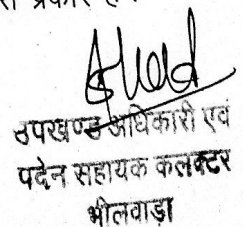 प्रकार है
उपखण्ड अधिकारी एवं
पदेन सहायक कलक्टर
भीलवाड़ा